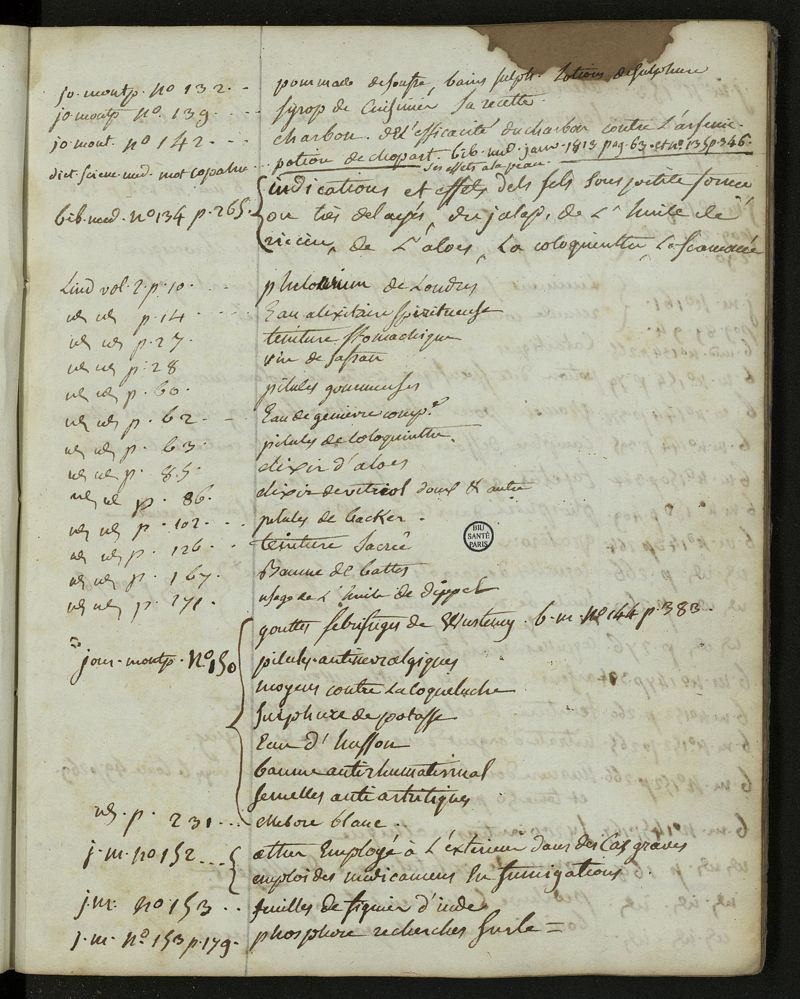 jo. montp. No 132. - pommade desoufre, bains sulph. Lotions desulphure
jo montp No. 139. - ... syrop de Cuisinier, sa recette.
jo. mont. No 142. - ... charbon. de l'efficacité du charbon contre L'arsenic.
dict. scienc. med. mot copahu... potion de chopart. bib. med. janv. 1813 pag. 63. et no. 135 p 346.
ses effets a la peau.
bib. med. No 134 p. 265. indications et effets dels sels sous petite forme
ou très delayés, du jalap, de L'huile de
riccin, de L'aloes, La coloquinthe, Le scamonée
Lind vol. 2. p. 10. ... de Londres
id id p. 14 ... Eau alixitaire spiritueuse
id id p. 27. teinture stomachique
id id p. 28 vin de safran
id id p. 60. pilules gommeuses
id id p. 62 - - Eau de genievre comp.e
id id p. 63. pilules de coloquinthe.
id id p. 85. elixir d'aloes
id id p. 86. elixir de vitriol doux & autre
id id p. 102. ... pilules de backer.
id id p. 126. .. teinture sacrée
id id p. 167. Baume de battes
id id p. 271. usage de L'huile de dippel
gouttes febrifuges de b. m. No 144 p. 383.
jour. montp. No. 150 pilules antinevralgiques
moyens contre La coqueluche
sulphure de potasse
Eau d'husson
baume antirhumatismal
semelles antiartritiques
id. p. 231 ... ellebore blanc.
j. m. no 152 ... ether Employé à L'éxterieur dans des Cas graves
emploi des medicamens En fumigations.
j. m. no 153 .. feuilles de figuier d'inde
j. m. No. 153 p. 179. phosphore recherches sur le =
BIU
SANTÉ
PARIS